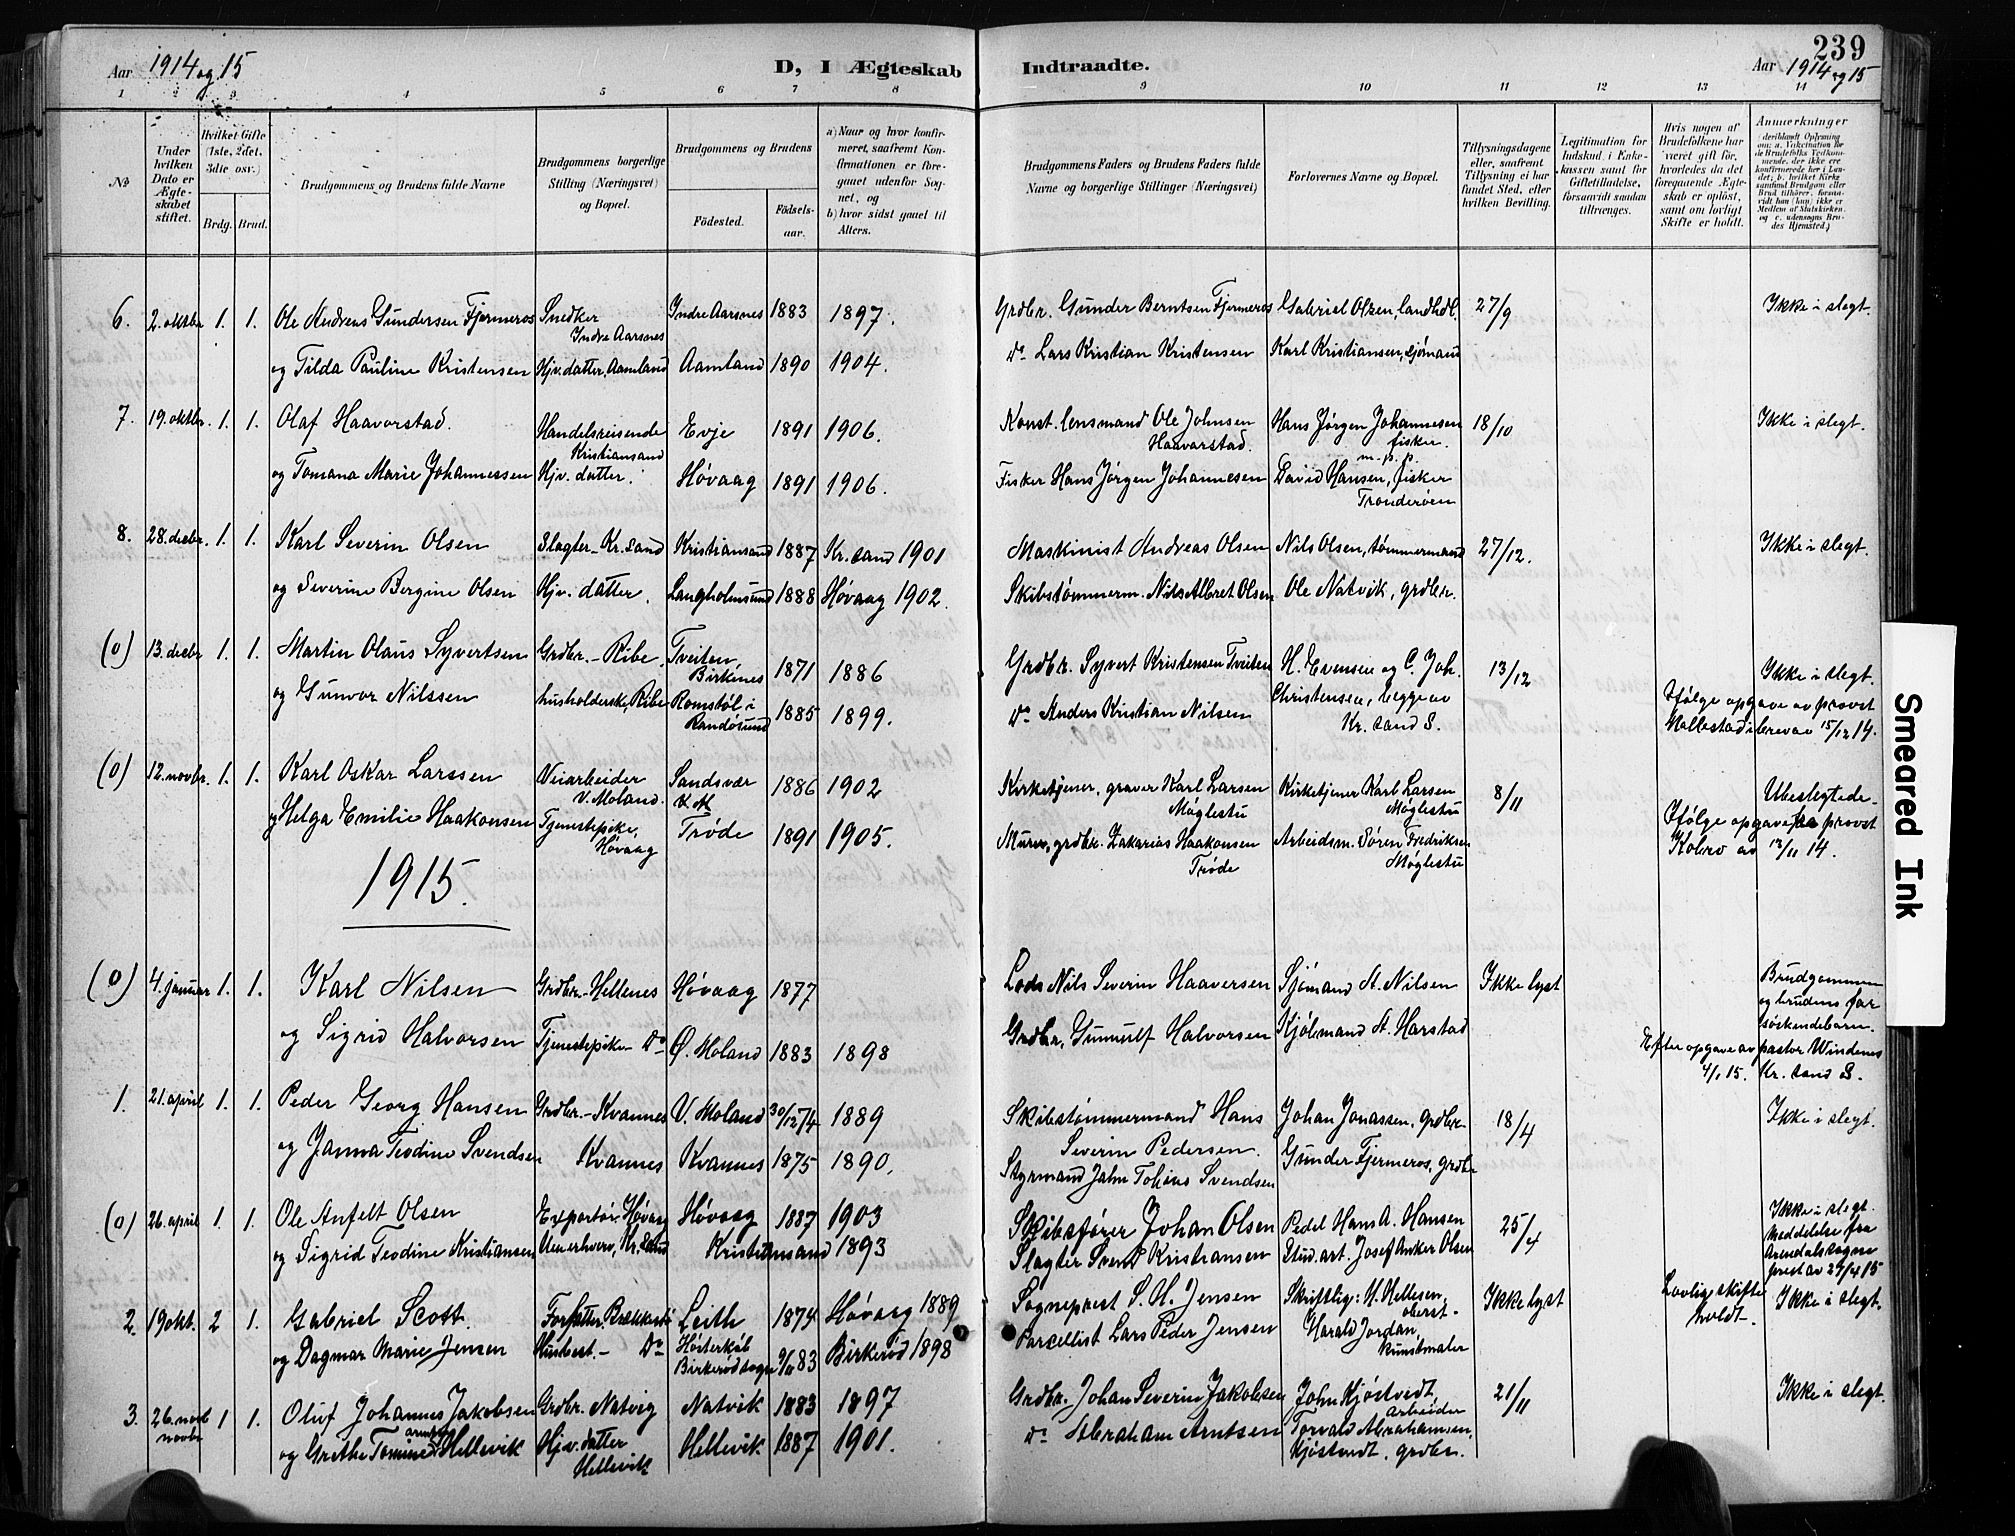 239
Aar 1914 og 15
D, I Ægteskab Indtraadte.
Aar 1914 og 15
1 2 3 4 5 6 7 8 9 10 11 12 13 14
No
Under hvilken Dato er Ægteskabet stiftet.
Hvilket Gifte (1ste, 2det, 3die osv.)
Brdg. Brud.
Brudgommens og Brudens fulde Navne
Brudgommens borgerlige Stilling (Næringsvei) og Bopæl.
Brudgommens og Brudens
Födested.
Födselsaar.
a) Naar og hvor konfirmeret, saafremt Konfirmationen er foregaaet udenfor Sognet, og
b) hvor sidst gaaet til Alters.
Brudgommens Faders og Brudens Faders fulde Navne og borgerlige Stillinger (Næringsvei)
Forlovernes Navne og Bopæl.
Tillysningsdagene eller, saafremt Tillysning ei har fundet Sted, efter hvilken Bevilling.
Legitimation for Indskud i Enkekassen samt for Giftetilladelse, forsaavidt saadan tiltrænges.
Hvis nogen af Brudefolkene har været gift för, hvorledes da det foregaaende Ægteskab er oplöst, samt om lovligt Skifte er holdt.
Anmerkninger
(deriblandt Oplysning om: a. Vakcination for de Brudefolks Vedkommende, der ikke ere konfirmerede her i Landet; b. hvilket Kirkesamfund Brudgom eller Brud tilhörer, forsaavidt han (hun) ikke er Medlem af Statskirken, og c. udensogns Brudes Hjemsted.)
6. 2. oktbr 1. 1. Ole Andreas Gundersen Fjermeros Snedker Indre Aarsnes Indre Aarsnes 1883 1897. Grdbr. Gunder Berntsen Fjermeros Gabriel Olsen, landhdl. 27/9 Ikke i slegt.
og Tilda Pauline Kristensen Hjv. datter, Aamland Aamland 1890 1904. Do Lars Kristian Kristensen Karl Kristiansen, sjømand
7. 19. oktbr. 1. 1. Olaf Haavorstad. Handelsreisende Kristiansand Evje 1891 1906. Konst. lensmand Ole Johnsen Haavarstad. Hans Jørgen Johannesen fisker. m.p.p. 18/10 Ikke i slegt.
og Tomana Marie Johannessen Hjv. datter. Høvaag 1891 1906. Fisker Hans Jørgen Johannesen David Hansen, fisker Tronderøen
8. 28. decbr. 1. 1. Karl Severin Olsen Slagter - Kr. sand Kristiansand 1887 Kr. sand 1901 Maskinist Andreas Olsen Nils Olsen, tømmermand 27/12. Ikke i slegt.
og Severine Bergine Olsen Hjv. datter. Langholmsund 1888 Høvaag 1902. Skibstømmerm. Nils Albret Olsen Ole Natvik, grdbr.
(0) 13. decbr 1. 1. Martin Olaus Syvertsen Grdbr. - Ribe. Tveiten, Birkenes 1871 1886 Grdbr. Syvert Kristensen Tveiten H. Evensen og C. Joh. 13/12 Ikke i slegt.
og Gunvor Nilssen husholderske, Ribe Romstøl i Randøsund 1885 1899. Do Anders Kristian Nilsen Christensen, begge av Kr. sand S. Ifølge opgave av provst Hallestad i brev av 15/12 14.
(0) 12. novbr. 1. 1. Karl Oskar Larssen Veiarbeider V. Moland. Sandsvær 1886 1902 Kirketjener, graver Karl Larsen Møglestu Kirketjener Karl Larsen Møglestu 8/11 Ubeslegtede.
og Helga Emilie Haakonsen Tjenestepike, Høvaag Trøde 1891 1905. Murer, grdbr. Zakarias Haakonsen Trøde Arbeidsm. Søren Fredriksen Møglestu Ifølge opgave fra provst Kolsrø av 13/11 14.
1915.
(0) 4. januar 1. 1. Karl Nilsen Grdbr. - Hellenes Høvaag 1877 Lods Nils Severin Haaversen Sjømand A. Nilsen Ikke lyst Brudgommen og brudens far søskendebarn.
og Sigrid Halvorsen Tjenestepike - Do Ø. Moland 1883 1898 Grdbr. Gunnulf Halvorsen Kjøbmand A. Harstad Efter opgave av pastor Windenes 4/1 15. Kr. sand S.
1. 21. april 1. 1. Peder Georg Hansen Grdbr. - Kvannes V. Moland 30/12 74 1889 Skibstømmermand Hans Severin Pedersen. Johan Jonassen, grdbr. 18/4 Ikke i slegt.
og Janna Teodine Svendsen Kvannes Kvannes 1875 1890. Styrmand Jahn Tobias Svendsen Gunder Fjermeros, grdbr
(0) 26. april 1. 1. Ole Anfelt Olsen Exportør, Høvaag Høvaag 1887 1903 Skibsfører Johan Olsen Pedel Hans A. Hansen 25/4 Ikke i slegt. Meddelelse fra Arendals sogneprest av 27/4 15
og Sigrid Teodine Kristiansen Uten erhverv, Kr. sand Kristiansand 1893 Slagter Svend Kristiansen Stud art. Josef Anker Olsen
2. 19 okt. 2 1. Gabriel Scott. Forfatter. Brækkestø Leith 1874 Høvaag 1889 Sogneprest S. H. Jensen Skriftlig: H. Hellesen, oberst. Ikke lyst Lovlig skifte holdt. Ikke i slegt.
og Dagmar Marie Jensen Husbest. - Do Høsterkøb Birkerød sogn 9/11 83 Birkerød 1898 Parcellist Lars Peder Jensen Harald Jordan, kunstmaler
3. 26. novb novbr 1 1. Oluf Johannes Jakobsen Grdbr. Natvig Natvik 1883 1897 Grdbr. Johan Severin Jakobsen John Kjøstvedt, arbeider 21/11 Ikke i slegt.
og Grethe Tomine Hellevik Hjv. datter Hellevik Hellevik 1887 1901. do Abraham Arntsen Torvald Abrahamsen, Kjøstvedt, grdbr.
Smeared Ink